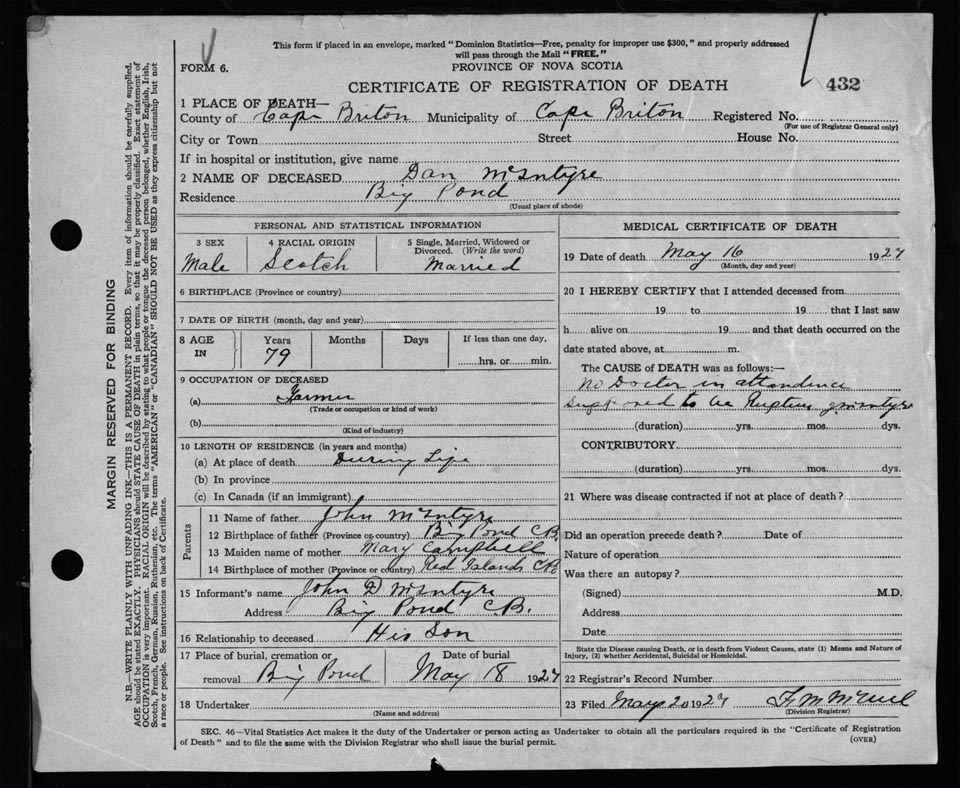 This form if placed in an envelope, marked "Dominion Statistics—Free, penalty for improper use $300," and properly addressed
will pass through the Mail "FREE."
FORM 6.
PROVINCE OF NOVA SCOTIA
CERTIFICATE OF REGISTRATION OF DEATH
432
1 PLACE OF DEATH—
County of Cape Briton Municipality of Cape Briton Registered No.
(For use of Registrar General only)
City or Town Street House No.
If in hospital or institution, give name
2 NAME OF DECEASED Dan McIntyre
Residence Big Pond
(Usual place of abode)
PERSONAL AND STATISTICAL INFORMATION
3 SEX 4 RACIAL ORIGIN 5 Single, Married, Widowed or
Divorced. (Write the word)
Male Scotch Married
6 BIRTHPLACE (Province or country)
7 DATE OF BIRTH (month, day and year)
8 AGE IN Years Months Days If less than one day,
79 hrs. or min.
9 OCCUPATION OF DECEASED
(a) Farmer
(Trade or occupation or kind of work)
(b)
(Kind of industry)
10 LENGTH OF RESIDENCE (in years and months)
(a) At place of death During Life
(b) In province
(c) In Canada (if an immigrant)
Parents
11 Name of father John McIntyre
12 Birthplace of father (Province or country) Big Pond C.B.
13 Maiden name of mother Mary Campbell
14 Birthplace of mother (Province or country) Red Islands CB
15 Informant's name John D McIntyre
Address Big Pond C.B.
16 Relationship to deceased His Son
17 Place of burial, cremation or Date of burial
removal Big Pond May 18 1927
18 Undertaker
(Name and address)
MEDICAL CERTIFICATE OF DEATH
19 Date of death May 16 1927
(Month, day and year)
20 I HEREBY CERTIFY that I attended deceased from
19 to 19 that I last saw
h alive on 19 and that death occurred on the
date stated above, at m.
The CAUSE of DEATH was as follows:—
No Doctor in attendence
supposed to be
(duration) yrs. mos. dys.
CONTRIBUTORY
(duration) yrs. mos. dys.
21 Where was disease contracted if not at place of death?
Did an operation precede death? Date of
Nature of operation
Was there an autopsy?
(Signed) M.D.
Address
Date
State the Disease causing Death, or in death from Violent Causes, state (1) Means and Nature of
Injury, (2) whether Accidental, Suicidal or Homicidal.
22 Registrar's Record Number
23 Filed May 20 1927
(Division Registrar)
SEC. 46—Vital Statistics Act makes it the duty of the Undertaker or person acting as Undertaker to obtain all the particulars required in the "Certificate of Registration
of Death" and to file the same with the Division Registrar who shall issue the burial permit.
(OVER)
MARGIN RESERVED FOR BINDING
N.B.—WRITE PLAINLY WITH UNFADING INK—THIS IS A PERMANENT RECORD. Every item of information should be carefully supplied.
AGE should be stated EXACTLY. PHYSICIANS should STATE CAUSE OF DEATH in plain terms, so that it may be properly classified. Exact statement of
OCCUPATION is very important. RACIAL ORIGIN will be described by stating to what people or tongue the deceased person belonged, whether English, Irish,
Scotch, French, German, Russian, Ruthenian, etc. The terms "AMERICAN" or "CANADIAN" SHOULD NOT BE USED as they express citizenship but not
a race or people. See instructions on back of Certificate.